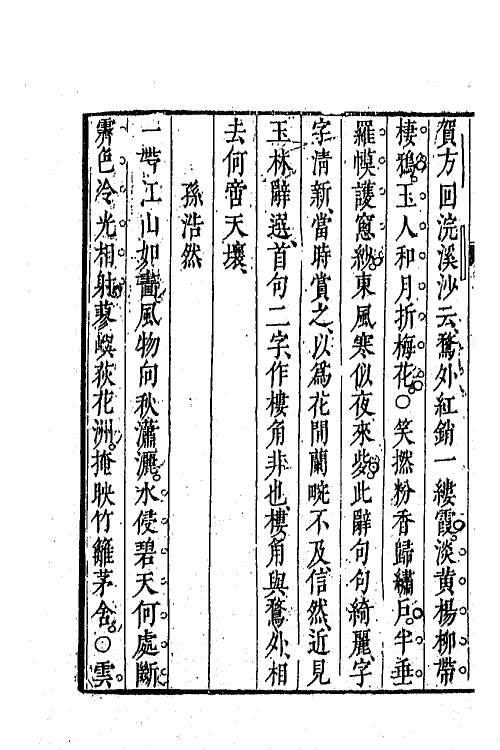 賀方回浣溪沙云鶩外紅銷一縷霞淡黃楊柳帶
棲鴉玉人和月折梅花○笑撚粉香歸繡戶半垂
羅幙護窓紗東風寒似夜來些此辭句句綺麗字
字清新當時賞之以爲花間蘭畹不及信然近見
玉林辭選首句二字作樓角非也樓角與鶩外相
去何啻天壤
孫浩然
一帶江山如畵風物向秋瀟灑水侵碧天何處斷
霽色冷光相射蓼嶼荻花洲掩映竹籬茅舍○雲